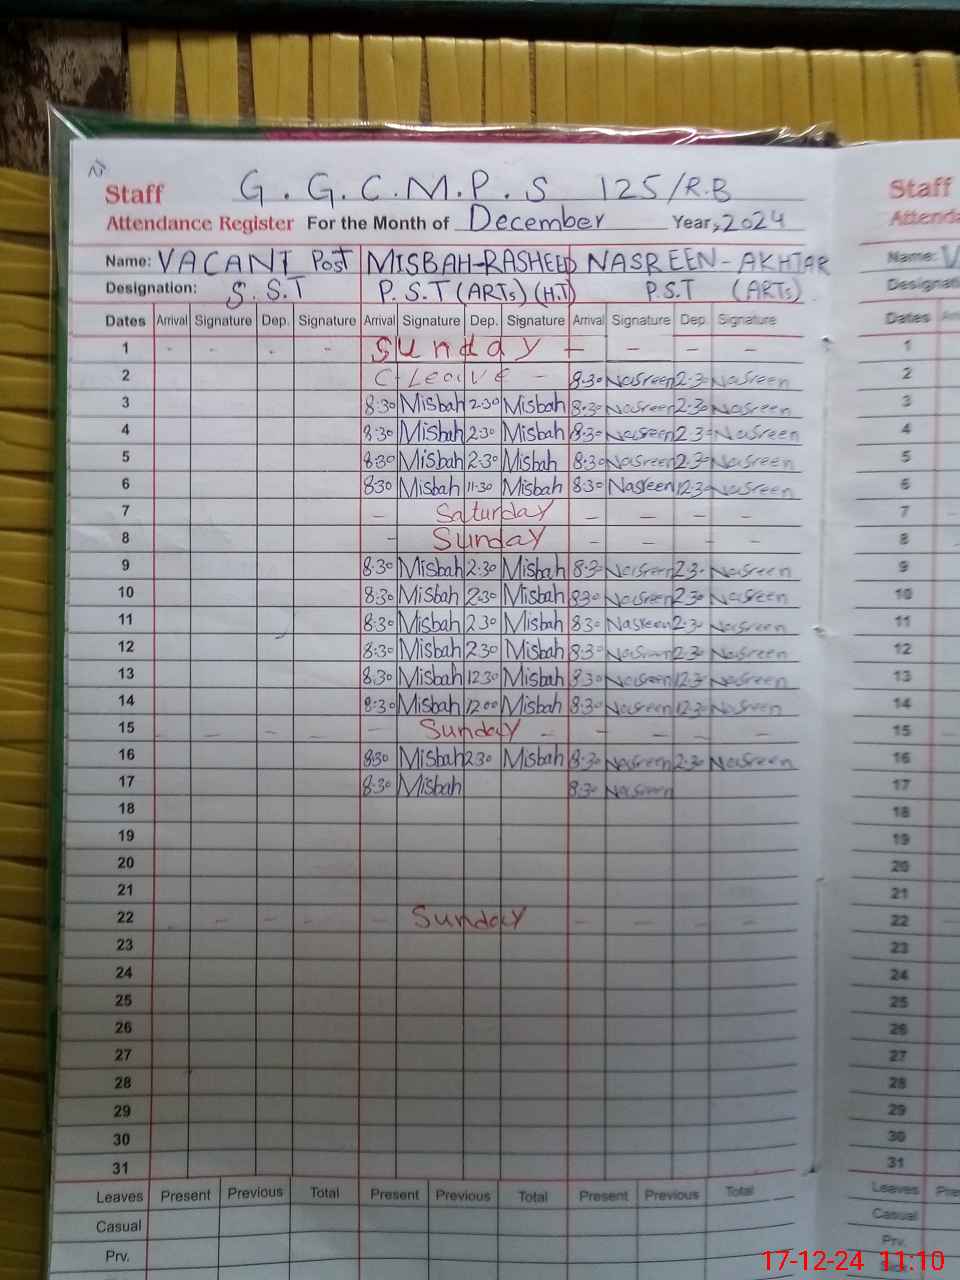 Staff G.G.C.M.P.S 125/R.B
Attendance Register For the Month of December Year, 2024
Name: VACANT Post MISBAH-RASHEED NASREEN-AKHTAR
Designation: S.S.T P.S.T (ARTs) (H.T) P.S.T (ARTs)
Dates Arrival Signature Dep. Signature Arrival Signature Dep. Signature Arrival Signature Dep. Signature
1 - - - - Sunday - - - -
2 C-Leave - 8:30 Nasreen 2:30 Nasreen
3 8:30 Misbah 2:30 Misbah 8:30 Nasreen 2:30 Nasreen
4 8:30 Misbah 2:30 Misbah 8:30 Nasreen 2:30 Nasreen
5 8:30 Misbah 2:30 Misbah 8:30 Nasreen 2:30 Nasreen
6 8:30 Misbah 11:30 Misbah 8:30 Nasreen 12:30 Nasreen
7 - Saturday - - - -
8 - Sunday - - - -
9 8:30 Misbah 2:30 Misbah 8:30 Nasreen 2:30 Nasreen
10 8:30 Misbah 2:30 Misbah 8:30 Nasreen 2:30 Nasreen
11 8:30 Misbah 2:30 Misbah 8:30 Nasreen 2:30 Nasreen
12 8:30 Misbah 2:30 Misbah 8:30 Nasreen 2:30 Nasreen
13 8:30 Misbah 12:30 Misbah 8:30 Nasreen 12:30 Nasreen
14 8:30 Misbah 12:00 Misbah 8:30 Nasreen 12:30 Nasreen
15 - - - - - Sunday - - - -
16 8:30 Misbah 2:30 Misbah 8:30 Nasreen 2:30 Nasreen
17 8:30 Misbah 8:30 Nasreen
18
19
20
21
22 - - - - - Sunday - - - -
23
24
25
26
27
28
29
30
31
Leaves Present Previous Total Present Previous Total Present Previous Total
Casual
Prv.
Staff
Name:
Dates
1
2
3
4
5
6
7
8
9
10
11
12
13
14
15
16
17
18
19
20
21
22
23
24
25
26
27
28
29
30
31
Leaves
Casual
Prv.
17-12-24 11:10